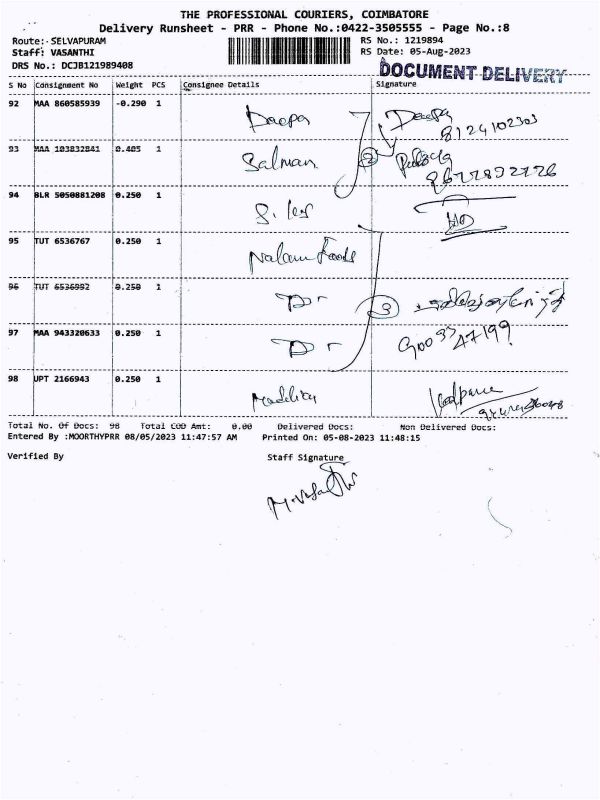 THE PROFESSIONAL COURIERS, COIMBATORE
Delivery Runsheet - PRR - Phone No.:0422-3505555 - Page No.:8
Route:- SELVAPURAM RS No.: 1219894
Staff: VASANTHI RS Date: 05-Aug-2023
DRS No.: DCJB121989408 DOCUMENT DELIVERY
S No Consignment No Weight PCS Consignee Details Signature
92 MAA 860585939 -0.290 1 Deepa Deepa
8124102303
93 MAA 103832841 0.405 1 Salman 2
8677892776
94 BLR 5050881208 0.250 1
95 TUT 6536767 0.250 1 Nalam Foods
96 TUT 6536992 0.250 1 Dr 3
97 MAA 943320633 0.250 1 Dr 9003347199
98 UPT 2166943 0.250 1
Total No. Of Docs: 98 Total COD Amt: 0.00 Delivered Docs: Non Delivered Docs:
Entered By :MOORTHYPRR 08/05/2023 11:47:57 AM Printed On: 05-08-2023 11:48:15
Verified By Staff Signature